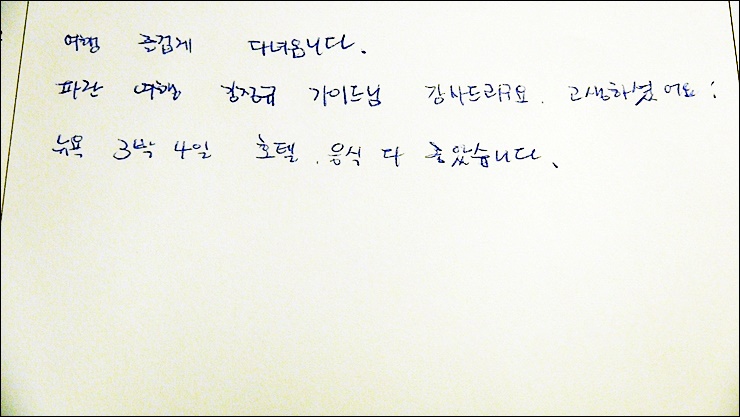 여행 즐겁게 다녀옵니다.
파란 여행 가이드님 감사드리구요. 고생하셨어요!
뉴욕 3박 4일 호텔, 음식 다 좋았습니다.